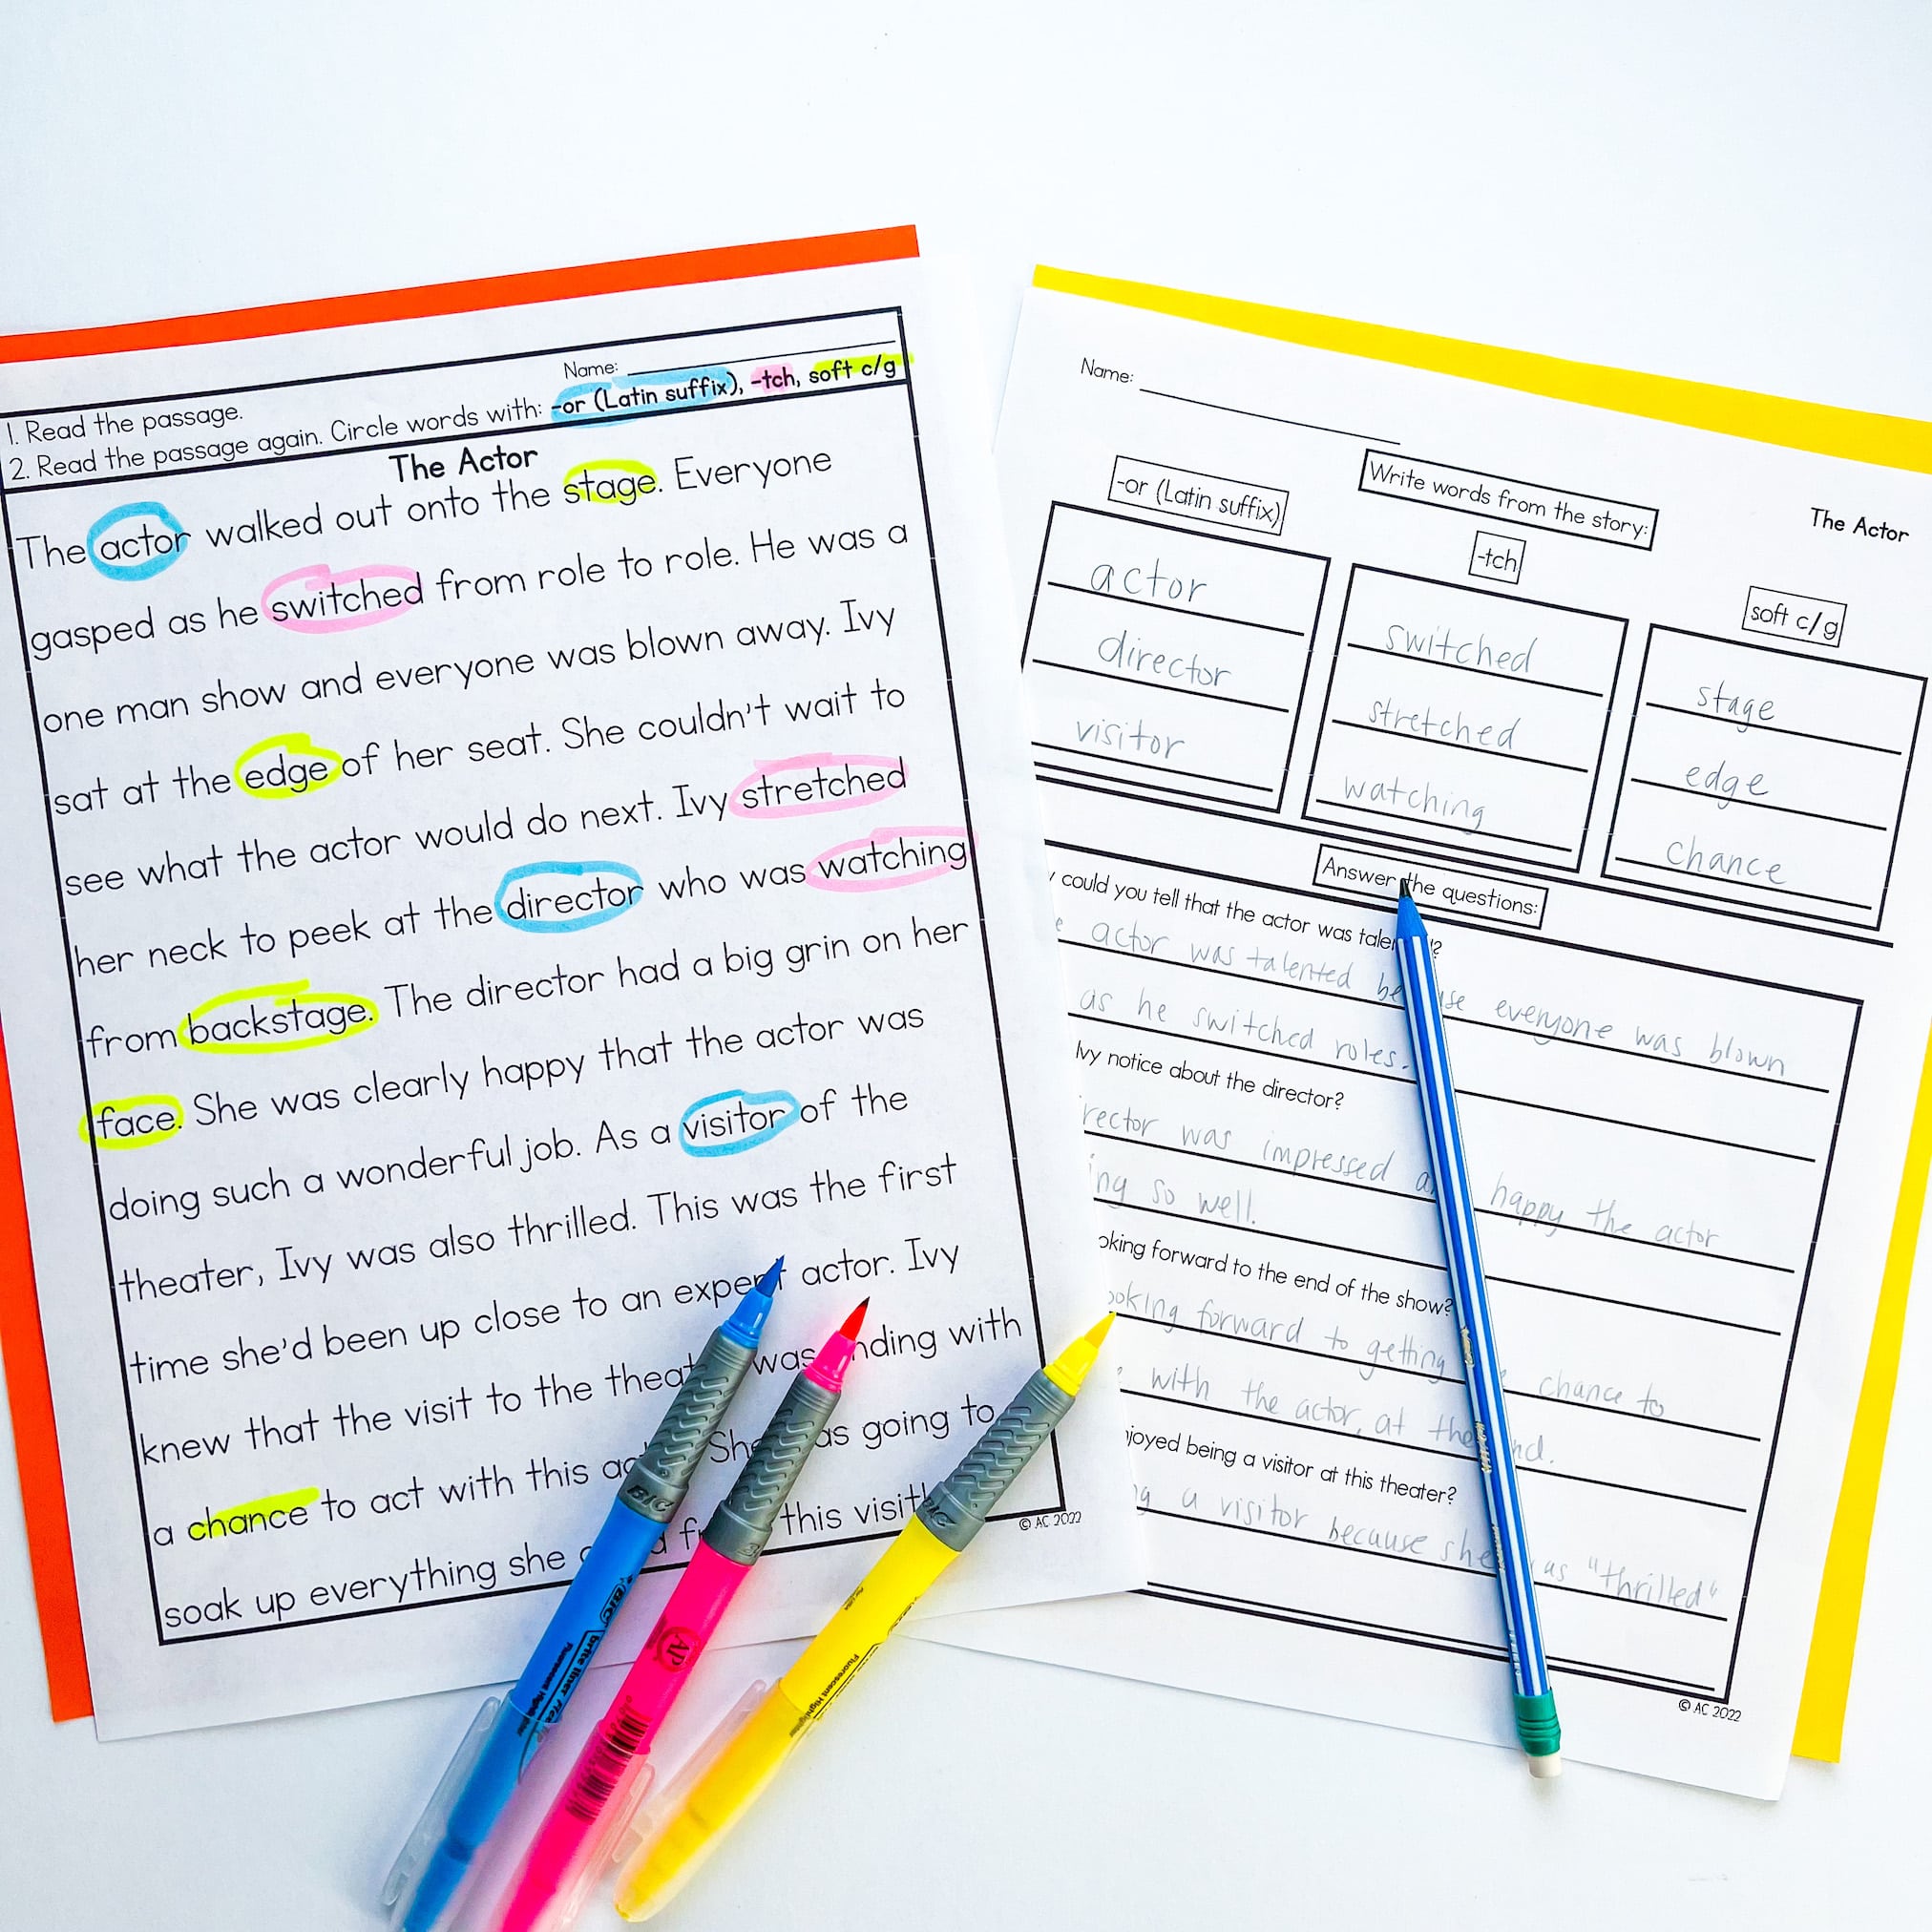 Name:
1. Read the passage.
2. Read the passage again. Circle words with: -or (Latin suffix), -tch, soft c/g
The Actor
The actor walked out onto the stage. Everyone
gasped as he switched from role to role. He was a
one man show and everyone was blown away. Ivy
sat at the edge of her seat. She couldn't wait to
see what the actor would do next. Ivy stretched
her neck to peek at the director who was watching
from backstage. The director had a big grin on her
face. She was clearly happy that the actor was
doing such a wonderful job. As a visitor of the
theater, Ivy was also thrilled. This was the first
time she'd been up close to an expert actor. Ivy
knew that the visit to the was with
a chance to act with this She going to
soak up everything she this visit
© AC 2022
BIC
BIC
BIC brite liner
AP
Fluorescent Highlighter
Name:
Write words from the story:
The Actor
-or (Latin suffix)
actor
director
visitor
-tch
switched
stretched
watching
soft c/g
stage
edge
chance
Answer the questions:
could you tell that the actor was
actor was talented because everyone was blown
as he switched roles.
Ivy notice about the director?
was impressed happy the actor
so well.
forward to the end of the show?
forward to getting chance to
with the actor, at the
being a visitor at this theater?
a visitor because she "thrilled"
© AC 2022